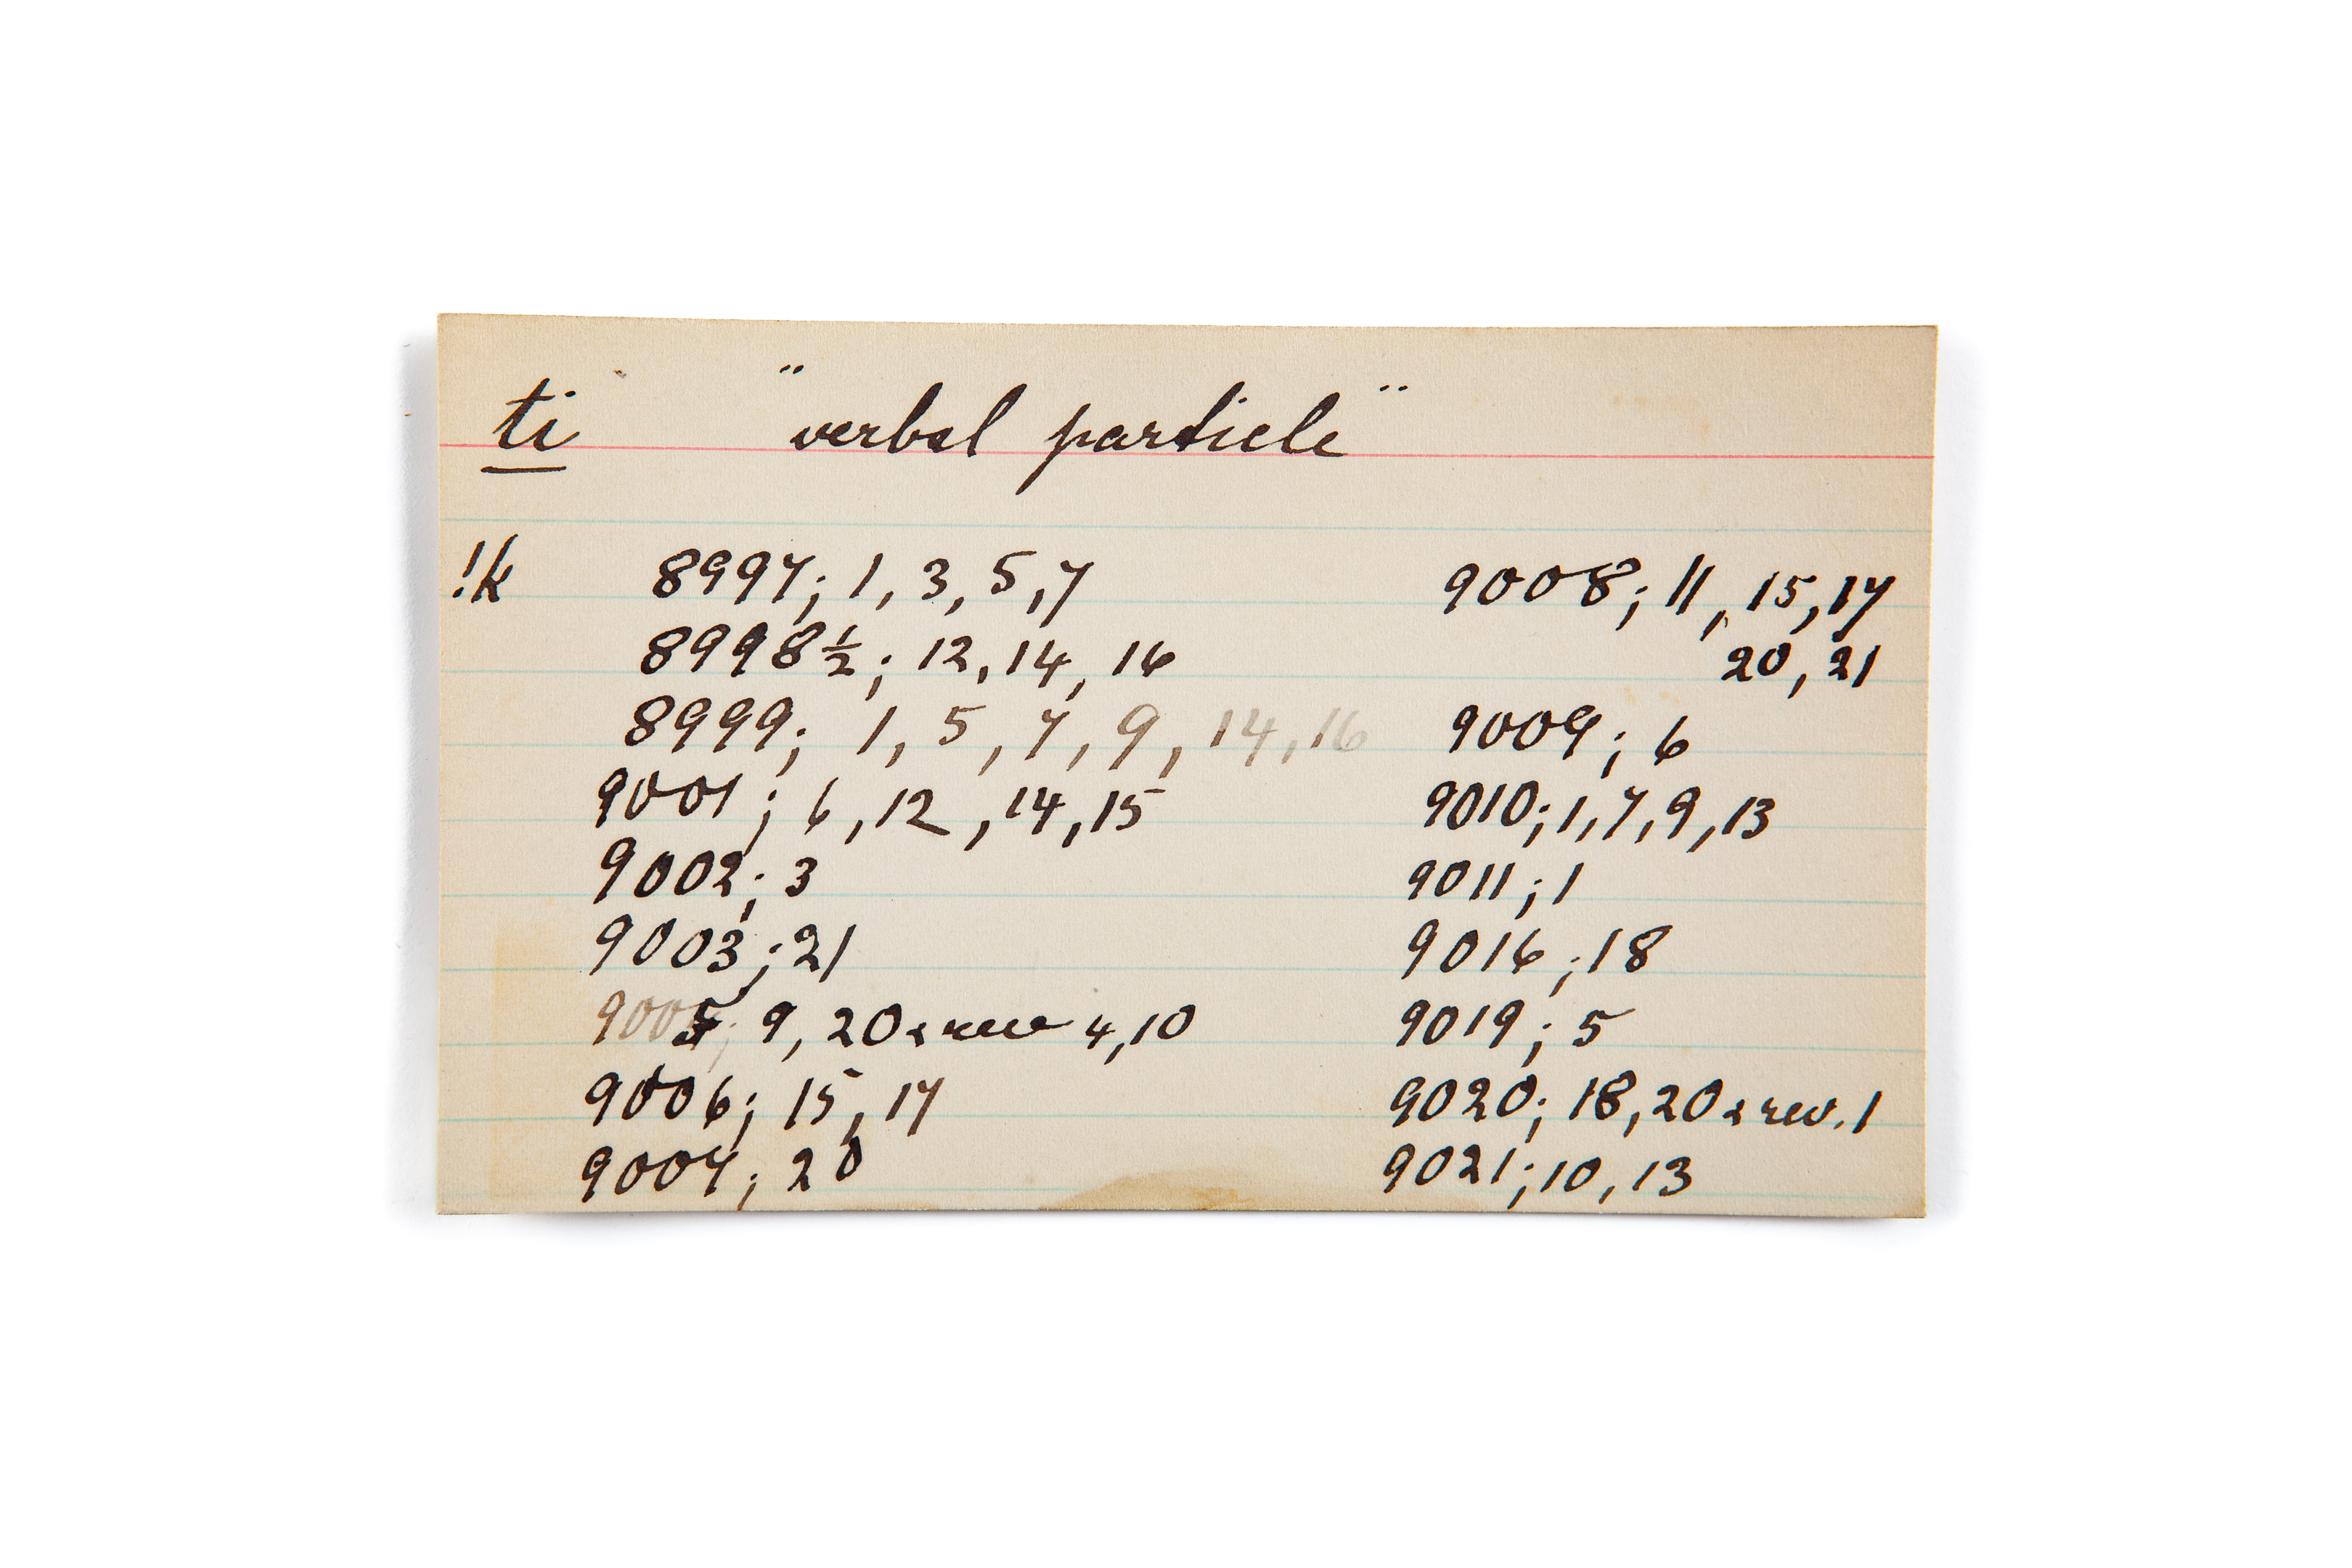 ti "verbal particle"
!k 8997; 1, 3, 5, 7
8998½; 12, 14, 16
8999; 1, 5, 7, 9, 14, 16
9001; 6, 12, 14, 15
9002; 3
9003; 21
9005; 9, 20 & rev 4, 10
9006; 15, 17
9007; 20
9008; 11, 15, 17
20, 21
9009; 6
9010; 1, 7, 9, 13
9011; 1
9016; 18
9019; 5
9020; 18, 20 & rev. 1
9021; 10, 13